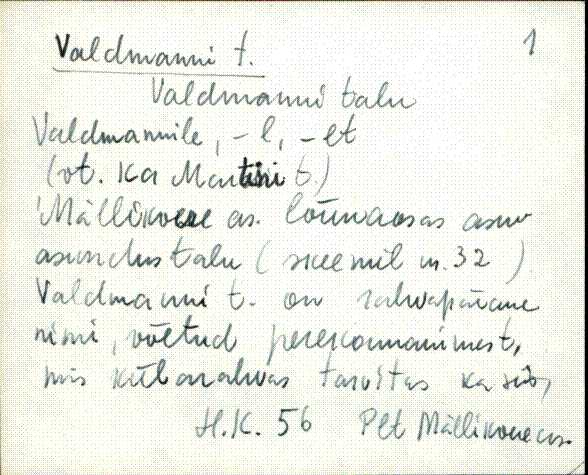 Valdmanni t. 1
Valdmanni talu
Valdmannile, -l, -et
(vt. ka Martini t.)
Mällikvere as. lõunaosas asuv
asundustalu (skeemil n. 32)
Valdmanni t. on rahvapärane
nimi, võetud perekonnanimest,
mis külarahvas tarvitas ka siis,
H.K. 56 Plt Mällikvere as.